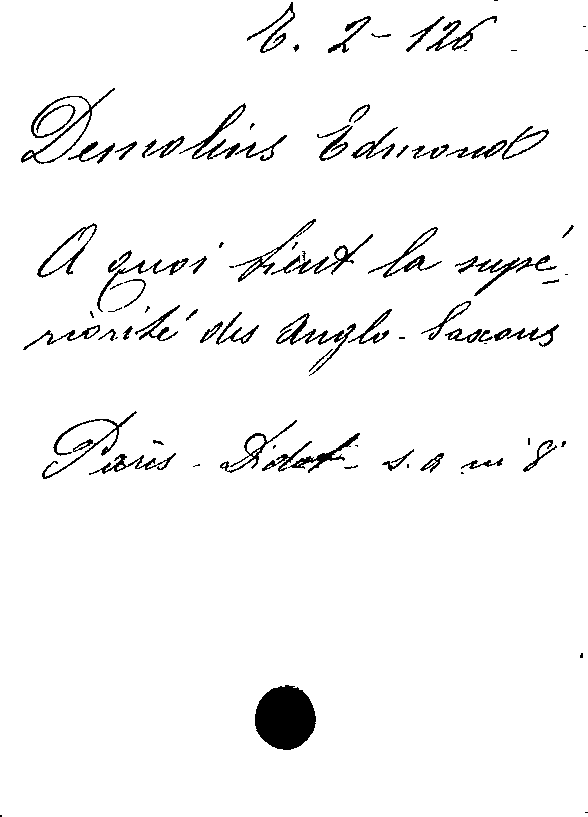 E. 2-126
Demolins Edmond
A quoi tient la supé-
riorité des Anglo-Saxons
Paris - Didot - s. a in 8°